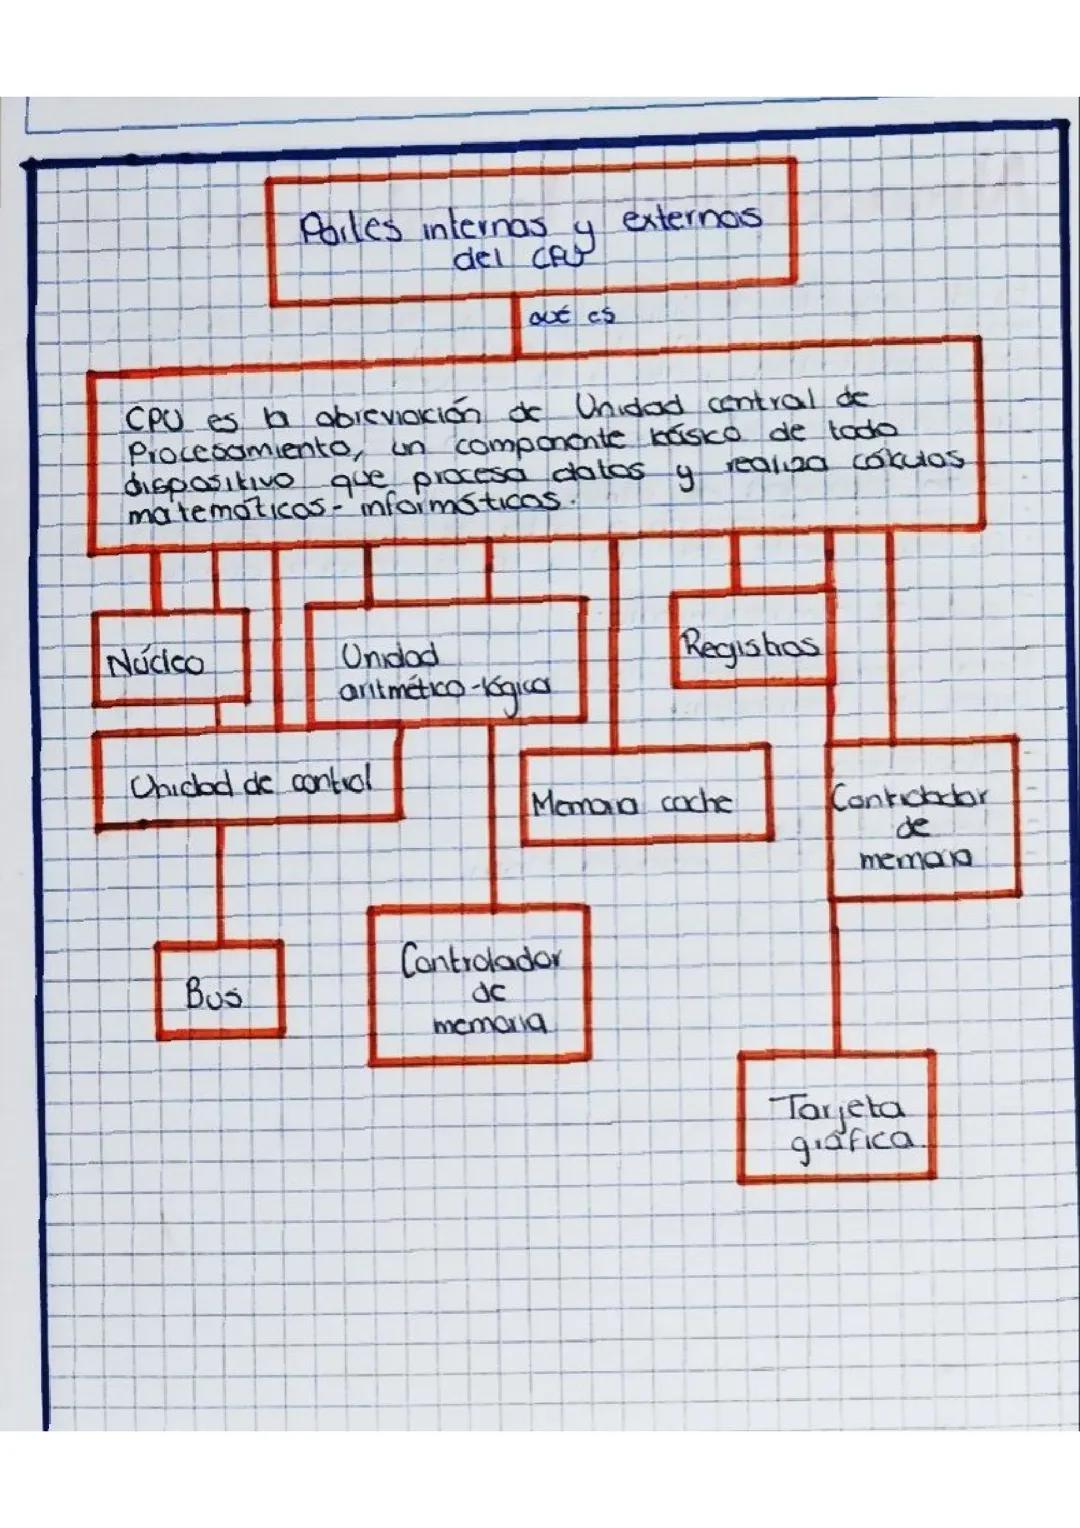 Partes internas y externas
del CPU
qué es
CPU es la abreviación de Unidad central de
Procesamiento, un componente básico de todo
dispositivo que procesa datos y realiza cálculos
matemáticos-informáticos.
Núcleo
Unidad
aritmético-lógica
Registros
Unidad de control
Memoria cache
Controlador
de
memoria
Bus
Controlador
de
memoria
Tarjeta
gráfica.